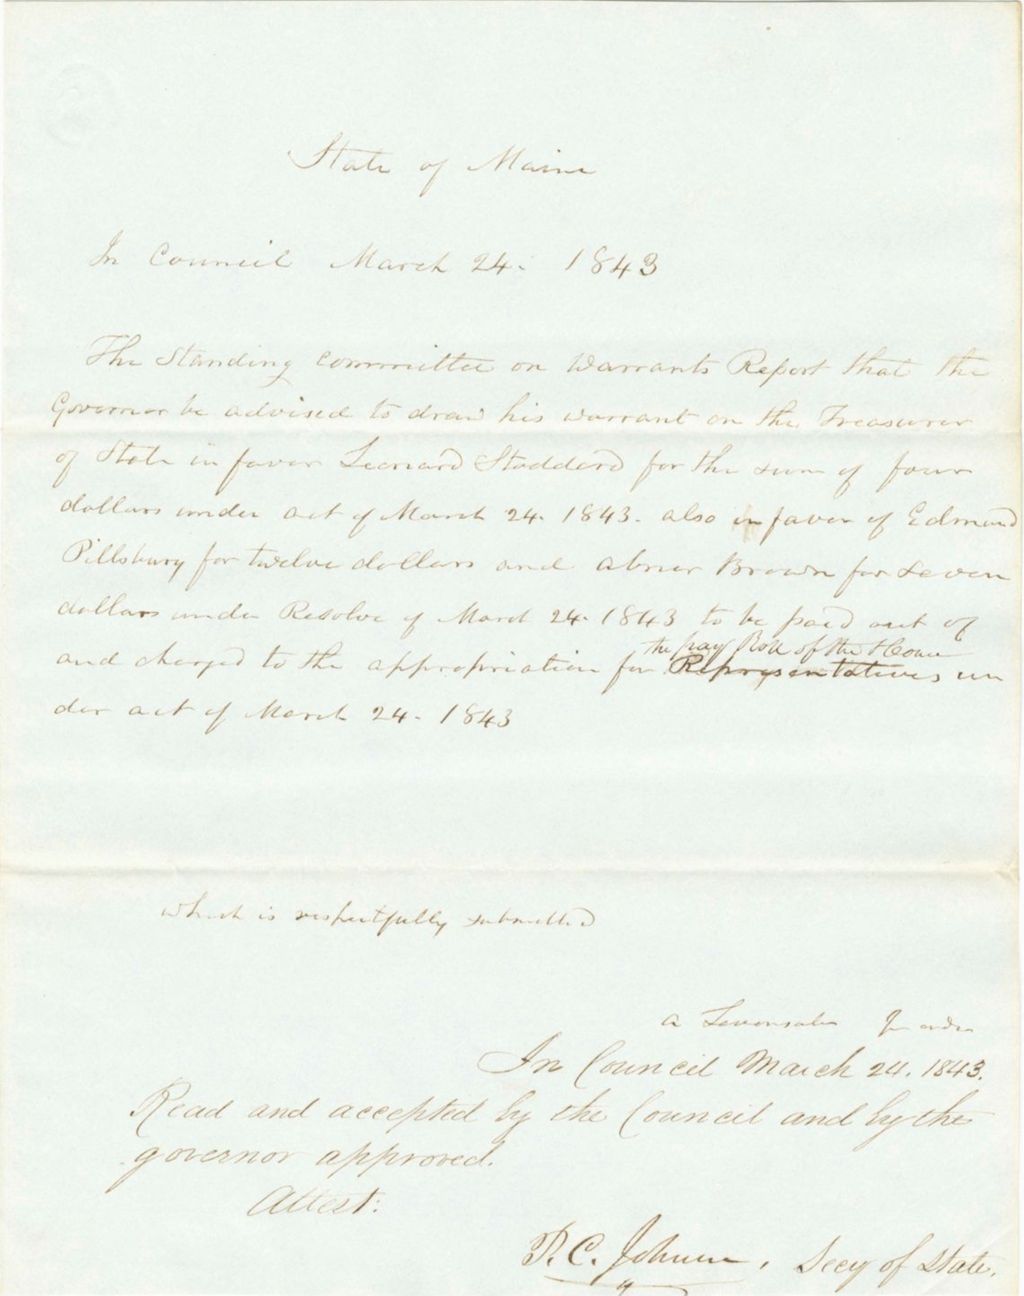 State of Maine
In Council March 24. 1843
The Standing committee on Warrants Report that the
Governor be advised to draw his warrant on the Treasurer
of State in favor Leonard Stoddard for the sum of four
dollars under act of March 24. 1843. also in favor of Edmund
Pillsbury for twelve dollars and Abner Brown for seven
dollars under Resolve of March 24. 1843 to be paid out of
the pay Roll of the House
and charged to the appropriation for Representatives un
der act of March 24. 1843
which is respectfully submitted
A Levensaler order
In Council March 24. 1843.
Read and accepted by the Council and by the
governor approved.
Attest:
P. C. Johnson, Secy of State.